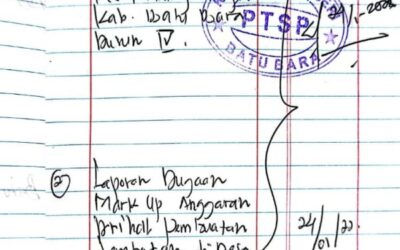 Kab. Batu Bara
Dusun IV.
PTSP
BATU BARA
24/1-2022
② Laporan Dugaan
Mark Up Anggaran
prihal pembuatan
24/01/22.